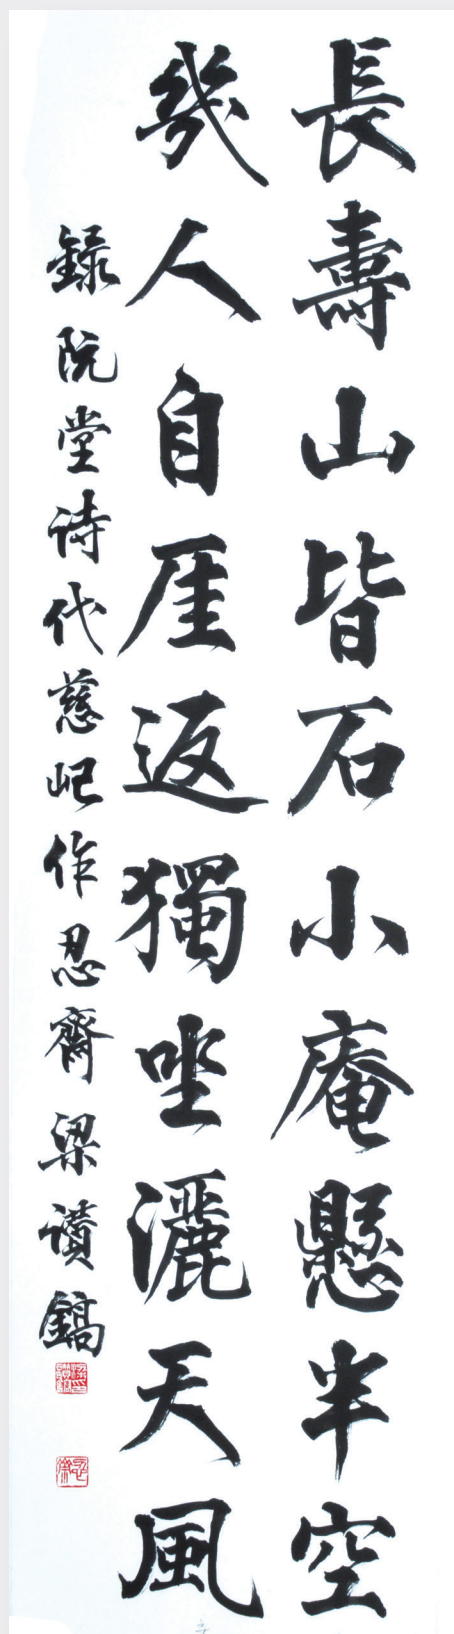 長壽山皆石小庵懸半空
幾人自厓返獨坐灑天風
録阮堂诗代慈屺作忍齊梁讃鎬